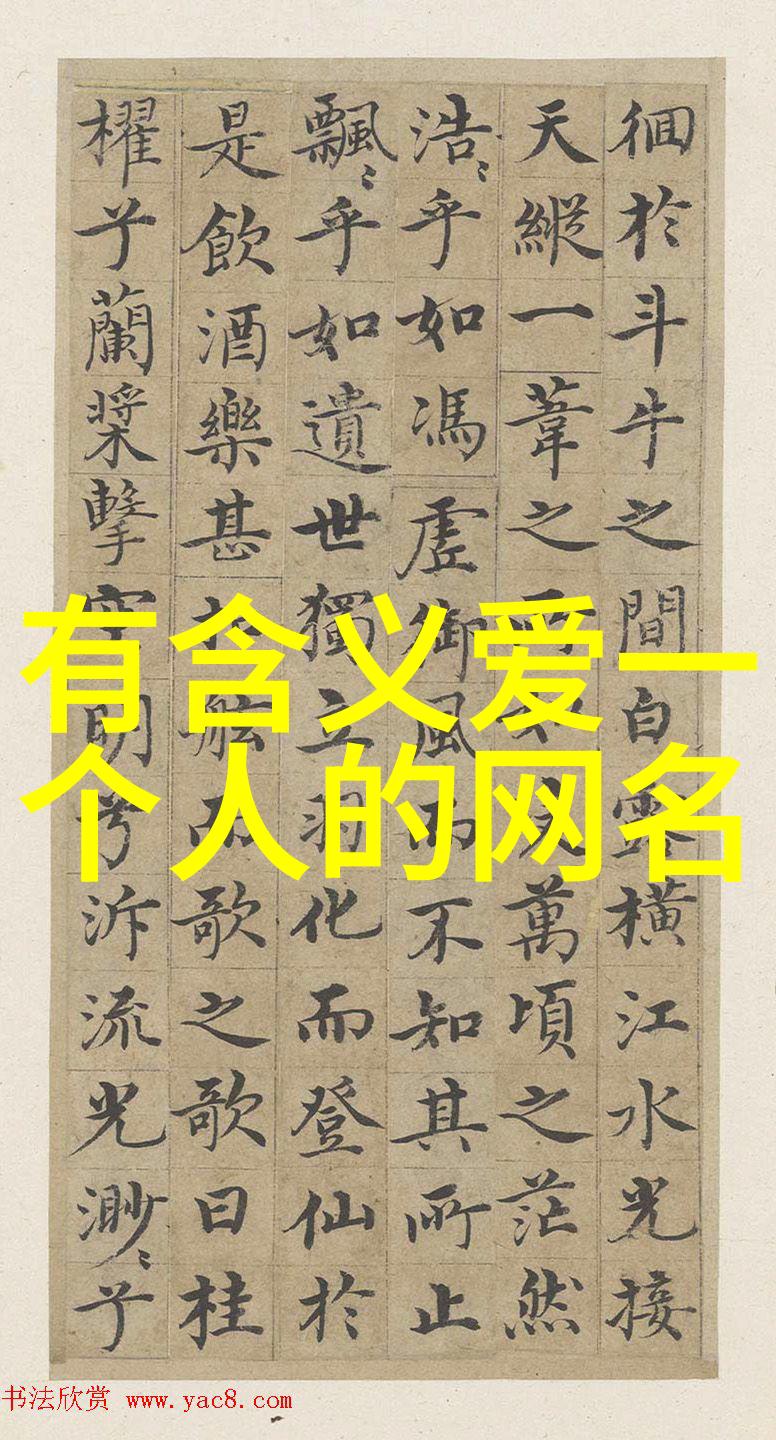 徊於斗牛之間白露橫江水光接
天縱一葦之所如凌萬頃之茫然
浩〻乎如馮虛御風而不知其所止
飄〻乎如遺世獨立羽化而登仙於
是飲酒樂甚扣舷而歌之歌曰桂
櫂兮蘭槳擊空明兮泝流光渺〻兮
有含义爱一
个人的网名
书法欣赏 www.yac8.com